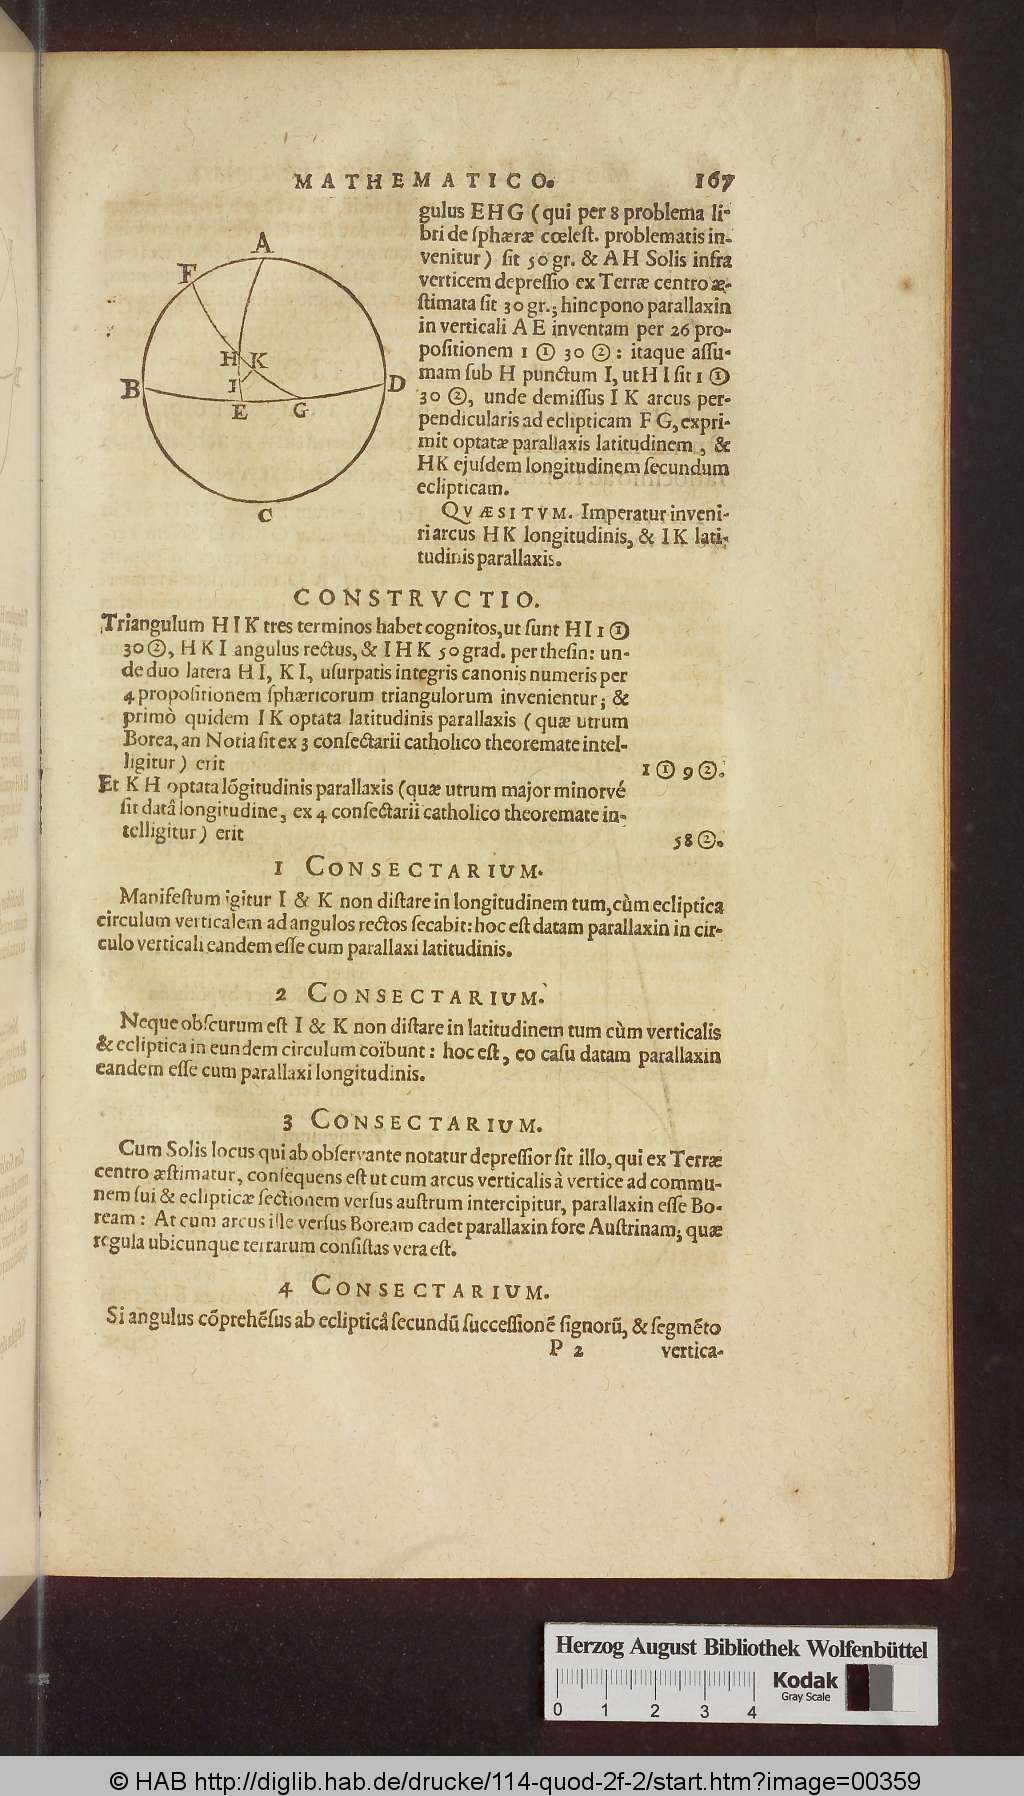 MATHEMATICO. 167
gulus EHG (qui per 8 problema li-
bri de ſphæræ cœleſt. problematis in-
venitur) ſit 50 gr. & AH Solis infra
verticem depreſſio ex Terræ centro æ-
ſtimata ſit 30 gr.; hinc pono parallaxin
in verticali A E inventam per 26 pro-
poſitionem 1 ① 30 ②: itaque aſſu-
mam ſub H punctum I, ut H I ſit 1 ①
30 ②, unde demiſſus I K arcus per-
pendicularis ad eclipticam F G, expri-
mit optatæ parallaxis latitudinem, &
HK ejuſdem longitudinem ſecundum
eclipticam.
QVÆSITVM. Imperatur inveni-
ri arcus HK longitudinis, & IK lati-
tudinis parallaxis.
A
F
H
K
B
I
D
E
G
C
CONSTRVCTIO.
Triangulum H I K tres terminos habet cognitos, ut ſunt H I 1 ①
30 ②, H K I angulus rectus, & I H K 50 grad. per theſin: un-
de duo latera H I, K I, uſurpatis integris canonis numeris per
4 propoſitionem ſphæricorum triangulorum invenientur; &
primò quidem I K optata latitudinis parallaxis (quæ utrum
Borea, an Notia ſit ex 3 conſectarii catholico theoremate intel-
ligitur) erit 1 ① 9 ②.
Et K H optata lõgitudinis parallaxis (quæ utrum major minorvé
ſit datâ longitudine, ex 4 conſectarii catholico theoremate in-
telligitur) erit 58 ②.
1 CONSECTARIUM.
Manifeſtum igitur I & K non diſtare in longitudinem tum, cùm ecliptica
circulum verticalem ad angulos rectos ſecabit: hoc eſt datam parallaxin in cir-
culo verticali eandem eſſe cum parallaxi latitudinis.
2 CONSECTARIUM.
Neque obſcurum eſt I & K non diſtare in latitudinem tum cùm verticalis
& ecliptica in eundem circulum coïbunt: hoc eſt, eo caſu datam parallaxin
eandem eſſe cum parallaxi longitudinis.
3 CONSECTARIUM.
Cum Solis locus qui ab obſervante notatur depreſſior ſit illo, qui ex Terræ
centro æſtimatur, conſequens eſt ut cum arcus verticalis à vertice ad commu-
nem ſui & eclipticæ ſectionem verſus auſtrum intercipitur, parallaxin eſſe Bo-
ream: At cum arcus ille verſus Boream cadet parallaxin fore Auſtrinam; quæ
regula ubicunque terrarum conſiſtas vera eſt.
4 CONSECTARIUM.
Si angulus cõprehẽſus ab eclipticâ ſecundũ ſucceſſionẽ ſignorũ, & ſegmẽto
P 2 vertica-
Herzog August Bibliothek Wolfenbüttel
Kodak
Gray Scale
0 1 2 3 4
© HAB http://diglib.hab.de/drucke/114-quod-2f-2/start.htm?image=00359